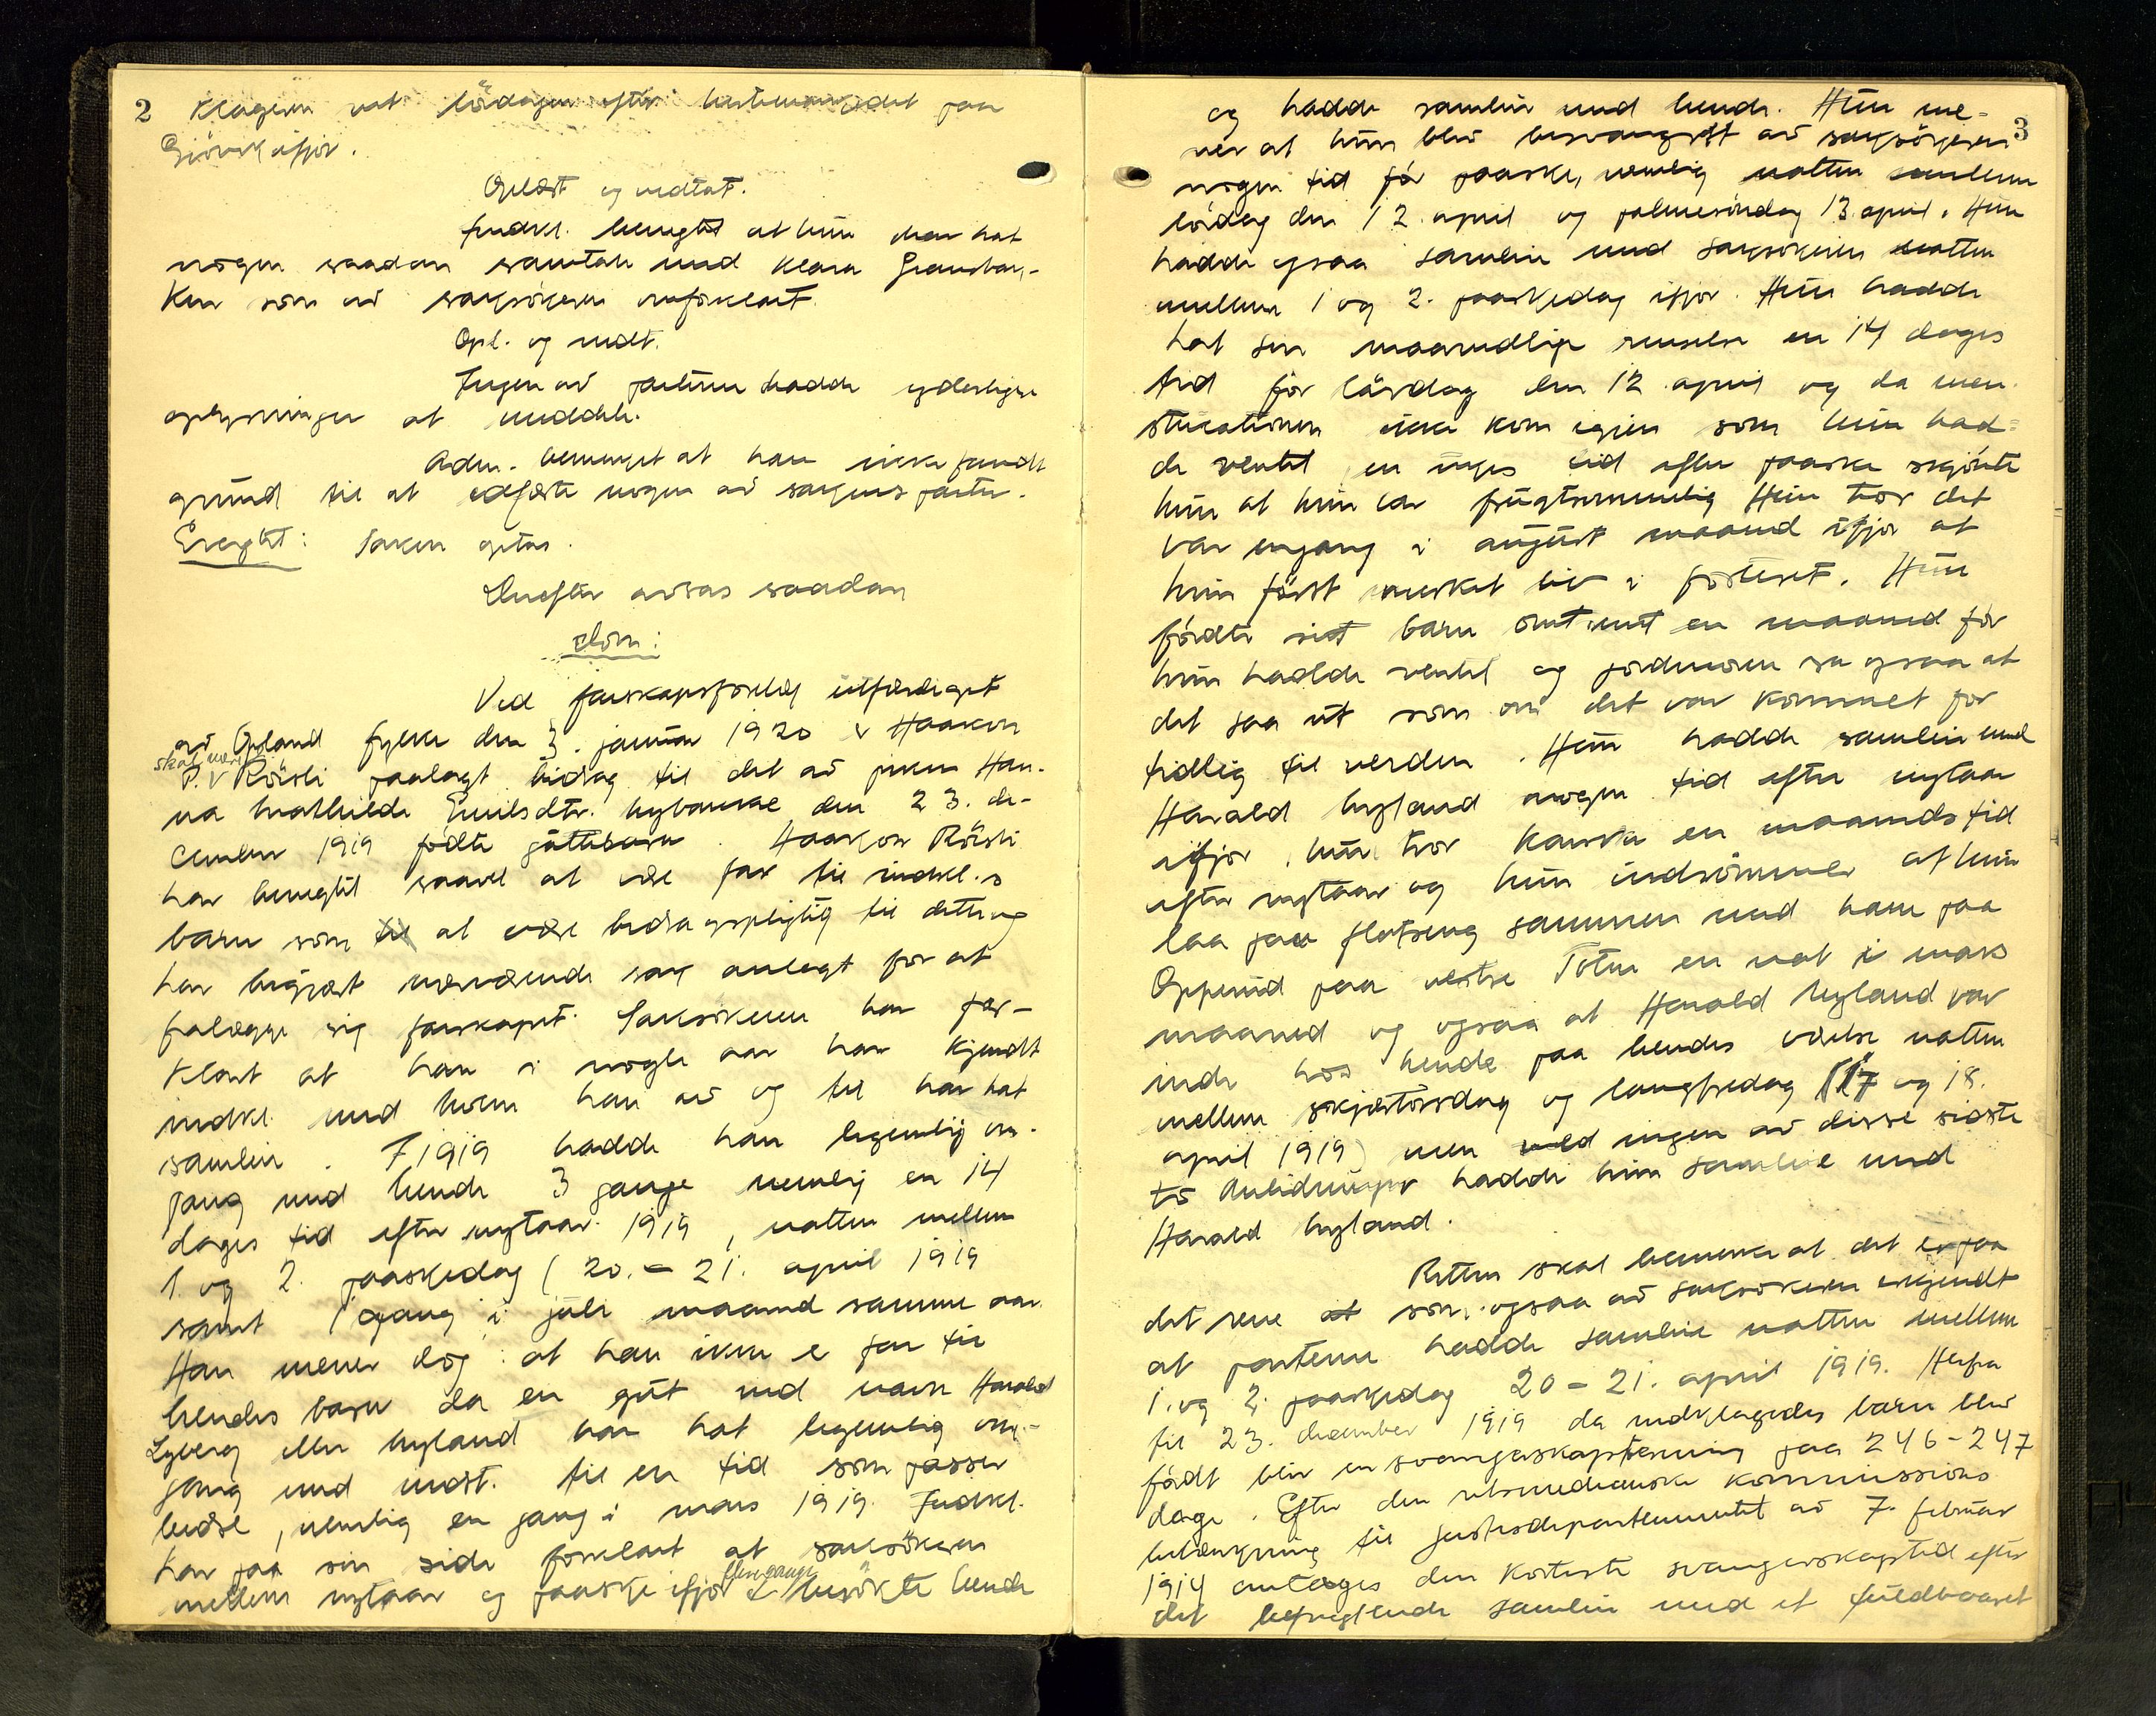 2 Klageren ved lördagen efter hestemarkedet paa
Gjövik ifjor.
Oplæst og vedtat.
Indkl. benegtet at hun har hat
nogen saadan samtale med Klara Gransbak-
ken som av saksökeren anforklart.
Opl. og vedt.
Ingen av parterne hadde yderligere
oplysninger at meddele.
Adm. bemerket at han ikke fandt
grund til at edfæste nogen av sakens parter.
Eragtet: Saken optas.
Derefter avsas saadan
dom:
Ved farskapsforelæg utfærdiget
av Opland fylke den 3. januar 1920 er Haakon
skal være
P. V Röisli paalagt bidrag til det av piken Han-
na Mathilde Emilsdtr. Nybakke den 23. de-
cember 1919 födte guttebarn. Haakon Röisli
har benegtet saavel at være far til indkl.s
barn som til at være bidragspligtig til dette og
har begjært nærværende sak anlagt for at
fralægge sig farskapet. Saksökeren har for-
klart at han i nogle aar har kjendt
indkl. med hvem han av og til har hat
samleie. I 1919 hadde han legemlig om-
gang med hende 3 gange nemlig en 14
dages tid efter nytaar 1919, natten mellem
1. og 2. paaskedag (20. - 21. april 1919
samt 1 gang i juli maaned samme aar.
Han mener dog at han ikke er far til
hendes barn da en gut ved navn Harald
Lyberg eller Nyland har hat legemlig om-
gang med indst. til en tid som passer
bedre, nemlig en gang i mars 1919. Indkl.
har paa sin side forklart at saksökeren
flere gange
mellem nytaar og paaske ifjor besökte hende
3
og hadde samleie med hende. Hun me-
ner at hun blev besvangret av saksökeren
nogen tid för paaske, nemlig natten mellem
lördag den 12. april og palmesöndag 13. april. Hun
hadde ogsaa samleie med saksökeren natten
mellem 1 og 2. paaskedag ifjor. Hun hadde
hat sin maanedlige renselse en 14 dages
tid för lördag den 12 april og da men-
struationen ikke kom igjen som hun had-
de ventet en ukes tid efter paaske skjönte
hun at hun var frugtsommelig. Hun tror det
var engang i august maaned ifjor at
hun först merket liv i fosteret. Hun
födte sit barn omtrent en maaned för
hun hadde ventet og jordmoren sa ogsaa at
det saa ut som om det var kommet for
tidlig til verden. Hun hadde samleie med
Harald Nyland nogen tid efter nytaar
ifjor, hun tror kanske en maaneds tid
efter nytaar og hun indrömmer at hun
laa paa flatseng sammen med ham paa
Oppenid paa vestre Toten en nat i mars
maaned og ogsaa at Harald Nyland var
inde hos hende paa hendes værelse natten
mellem skjærtorsdag og langfredag (17 og 18.
april 1919) men ved ingen av disse sidste
to anledninger hadde hun samleie med
Harald Nyland.
Retten skal bemerke at det er paa
det rene at som ogsaa av saksökeren erkjendt
at parterne hadde samleie natten mellem
1. og 2. paaskedag 20 - 21. april 1919. Herfra
til 23. december 1919 da indklagedes barn blev
födt blir en svangerskapstermin paa 246 - 247
dage. Efter den retsmedicinske kommissions
betænkning til justisdepartementet av 7. februar
1914 antages den korteste svangerskapstid efter
det befrugtende samleie med et fuldbaaret